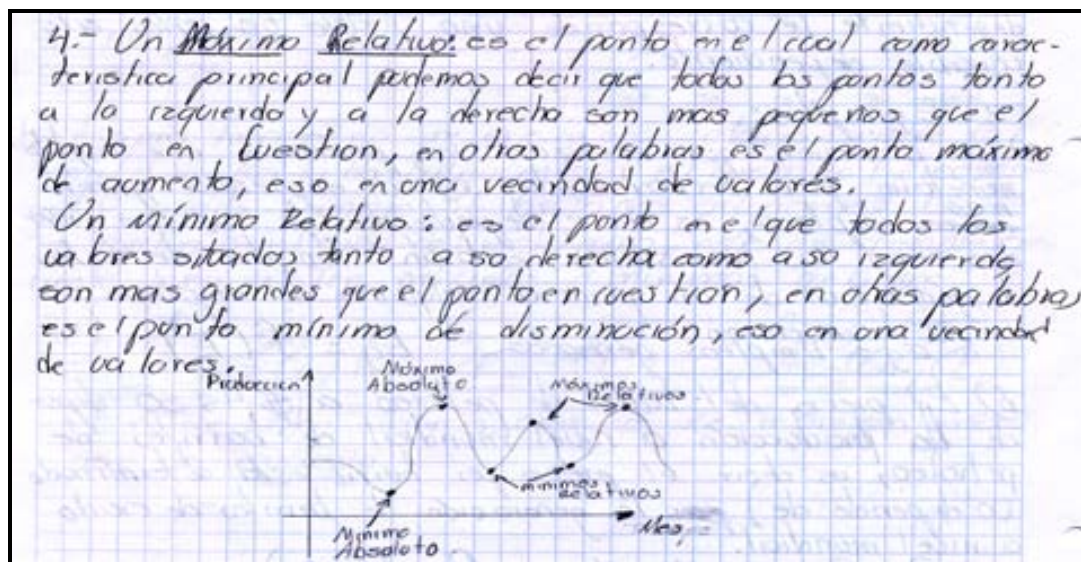 4.- Un Máximo Relativo: es el ponto en el cual como carac-
teristica principal podemos decir que todos los pontos tanto
a la izquierda y a la derecha son mas pequeños que el
ponto en Cuestion, en otras palabras es el ponto máximo
de aumento, eso en una vecindad de valores.
Un Mínimo Relativo: es el ponto en el que todos los
valores sitados tanto a so derecha como a so izquierda
son mas grandes que el ponto en cuestion, en otras palabras
es el punto mínimo de disminución, eso en una vecindad
de valores.
Producción
Máximo
Absoluto
Máximos
Relativos
minimos
Relativos
Mes
Mínimo
Absoloto